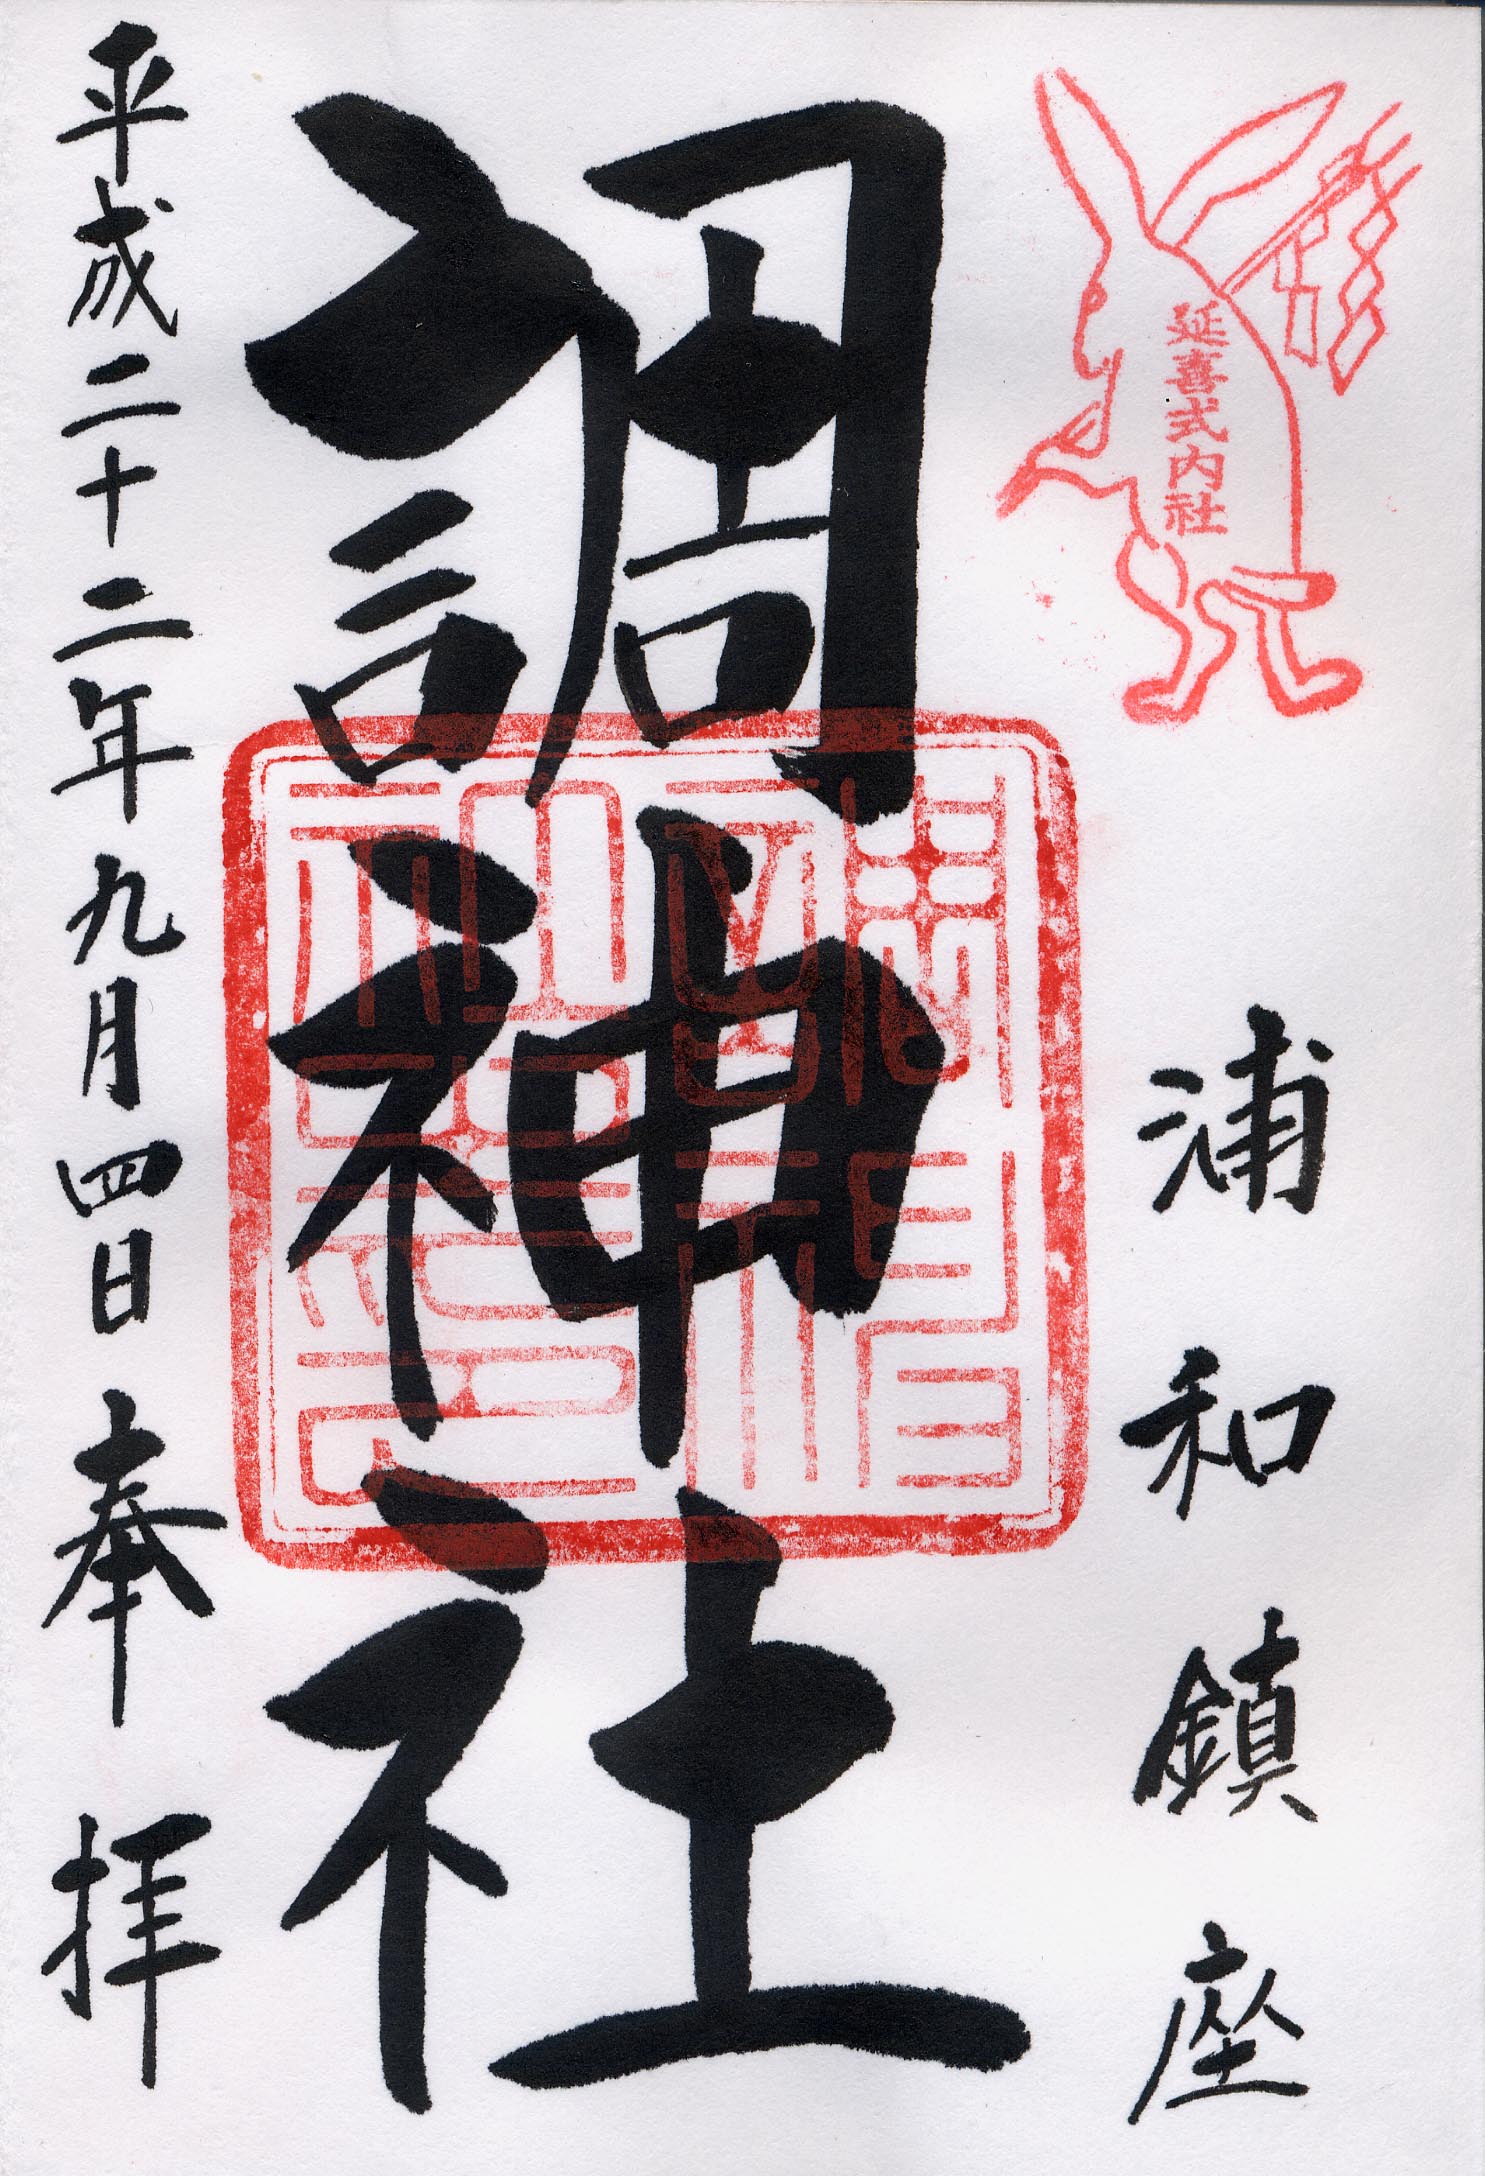 延喜式内社
浦和鎮座
調神社
平成二十二年九月四日奉拝